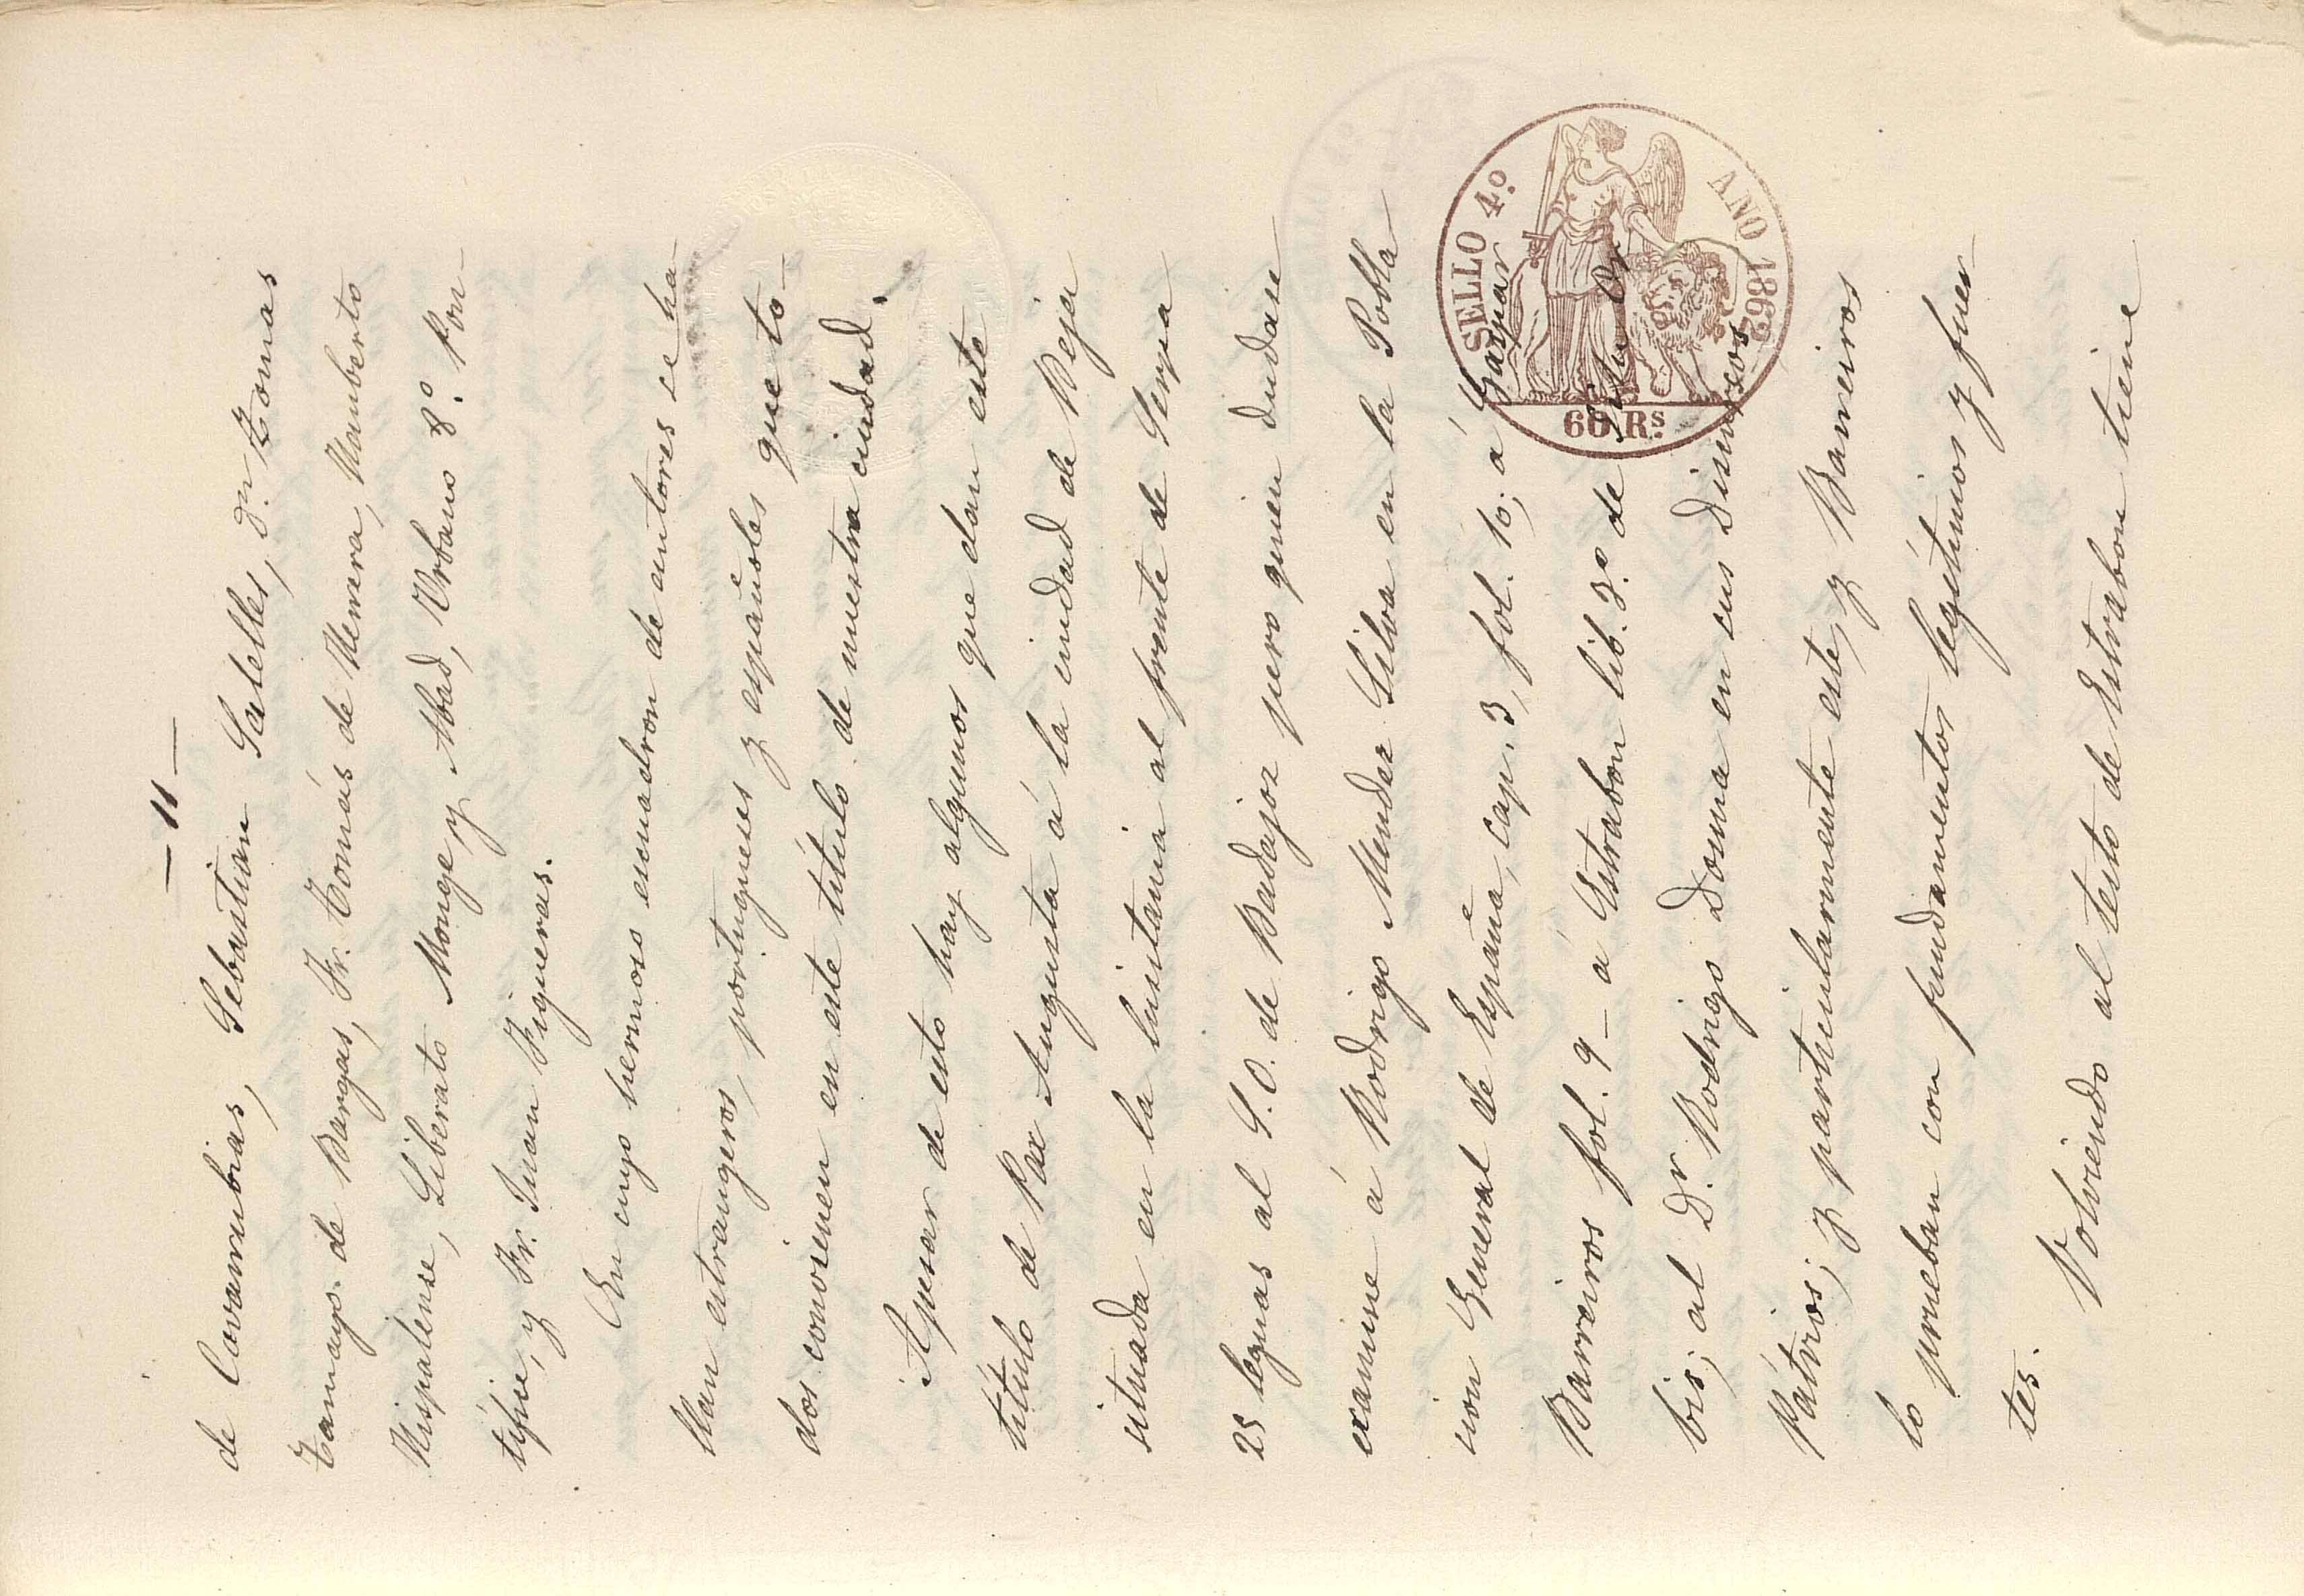 — 11 —
de Covarrubias, Sebastian Salelles, Dn. Tomas
Tamayo de Bargas, Fr. Tomás de Herrera, Mauberto
Hispalense, Liberato Monge y Abad, Urbano 8º. Pon-
tífice, y Fr. Juan Figueras.
En cuyo hermoso escuadron de autores se ha-
llan estrangeros, portugueses y españoles que to-
dos convienen en este título de nuestra ciudad.
Apesar de esto hay algunos que dan este
título de Pax Augusta á la ciudad de Beja
situada en la lusitania al frente de Serpa
25 leguas al S.O. de Badajoz pero quien dudase
examine á Rodrigo Mendez Silva en la Pobla
cion General de España, cap. 3, fol. 10; á Gaspar
Barreiros fol. 9 — á Estrabon lib. 3º. de Situ Or
bis; al Dr. Rodrigo Dosma en sus Discursos
Pátrios; y particularmente este, y Barreiros
lo prueban con fundamentos legítimos y fuer-
tes. Volviendo al testo de Estrabon tiene
SELLO 4º.
AÑO 1862
60 Rs.